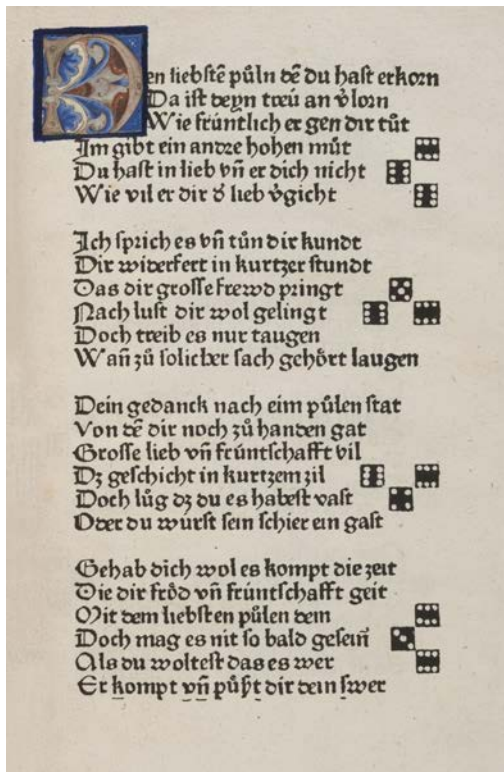 Den liebſtē půln dē du haſt erkorn
Da iſt deyn treú an v̓lorn
Wie frúntlich er gen dir tůt
Im gibt ein andre hohen můt
Du haſt in lieb vn̄ er dich nicht
Wie vil er dir d̓ lieb v̓gicht
Ich ſprich es vn̄ tůn dir kundt
Dir widerfert in kurtzer ſtundt
Das dir groſſe frewd pringt
Nach luſt dir wol gelingt
Doch treib es nur taugen
Wan̄ zů ſolicher ſach gehört laugen
Dein gedanck nach eim půlen ſtat
Von dē dir noch zů handen gat
Groſſe lieb vn̄ frúntſchafft vil
Dz geſchicht in kurtzem zil
Doch lůg dz du es habeſt vaſt
Oder du wurſt ſein ſchier ein gaſt
Gehab dich wol es kompt die zeit
Die dir fröd vn̄ frúntſchafft geit
Mit dem liebſten půlen dein
Doch mag es nit ſo bald geſein̄
Als du wolteſt das es wer
Er kompt vn̄ půſzt dir dein ſwer